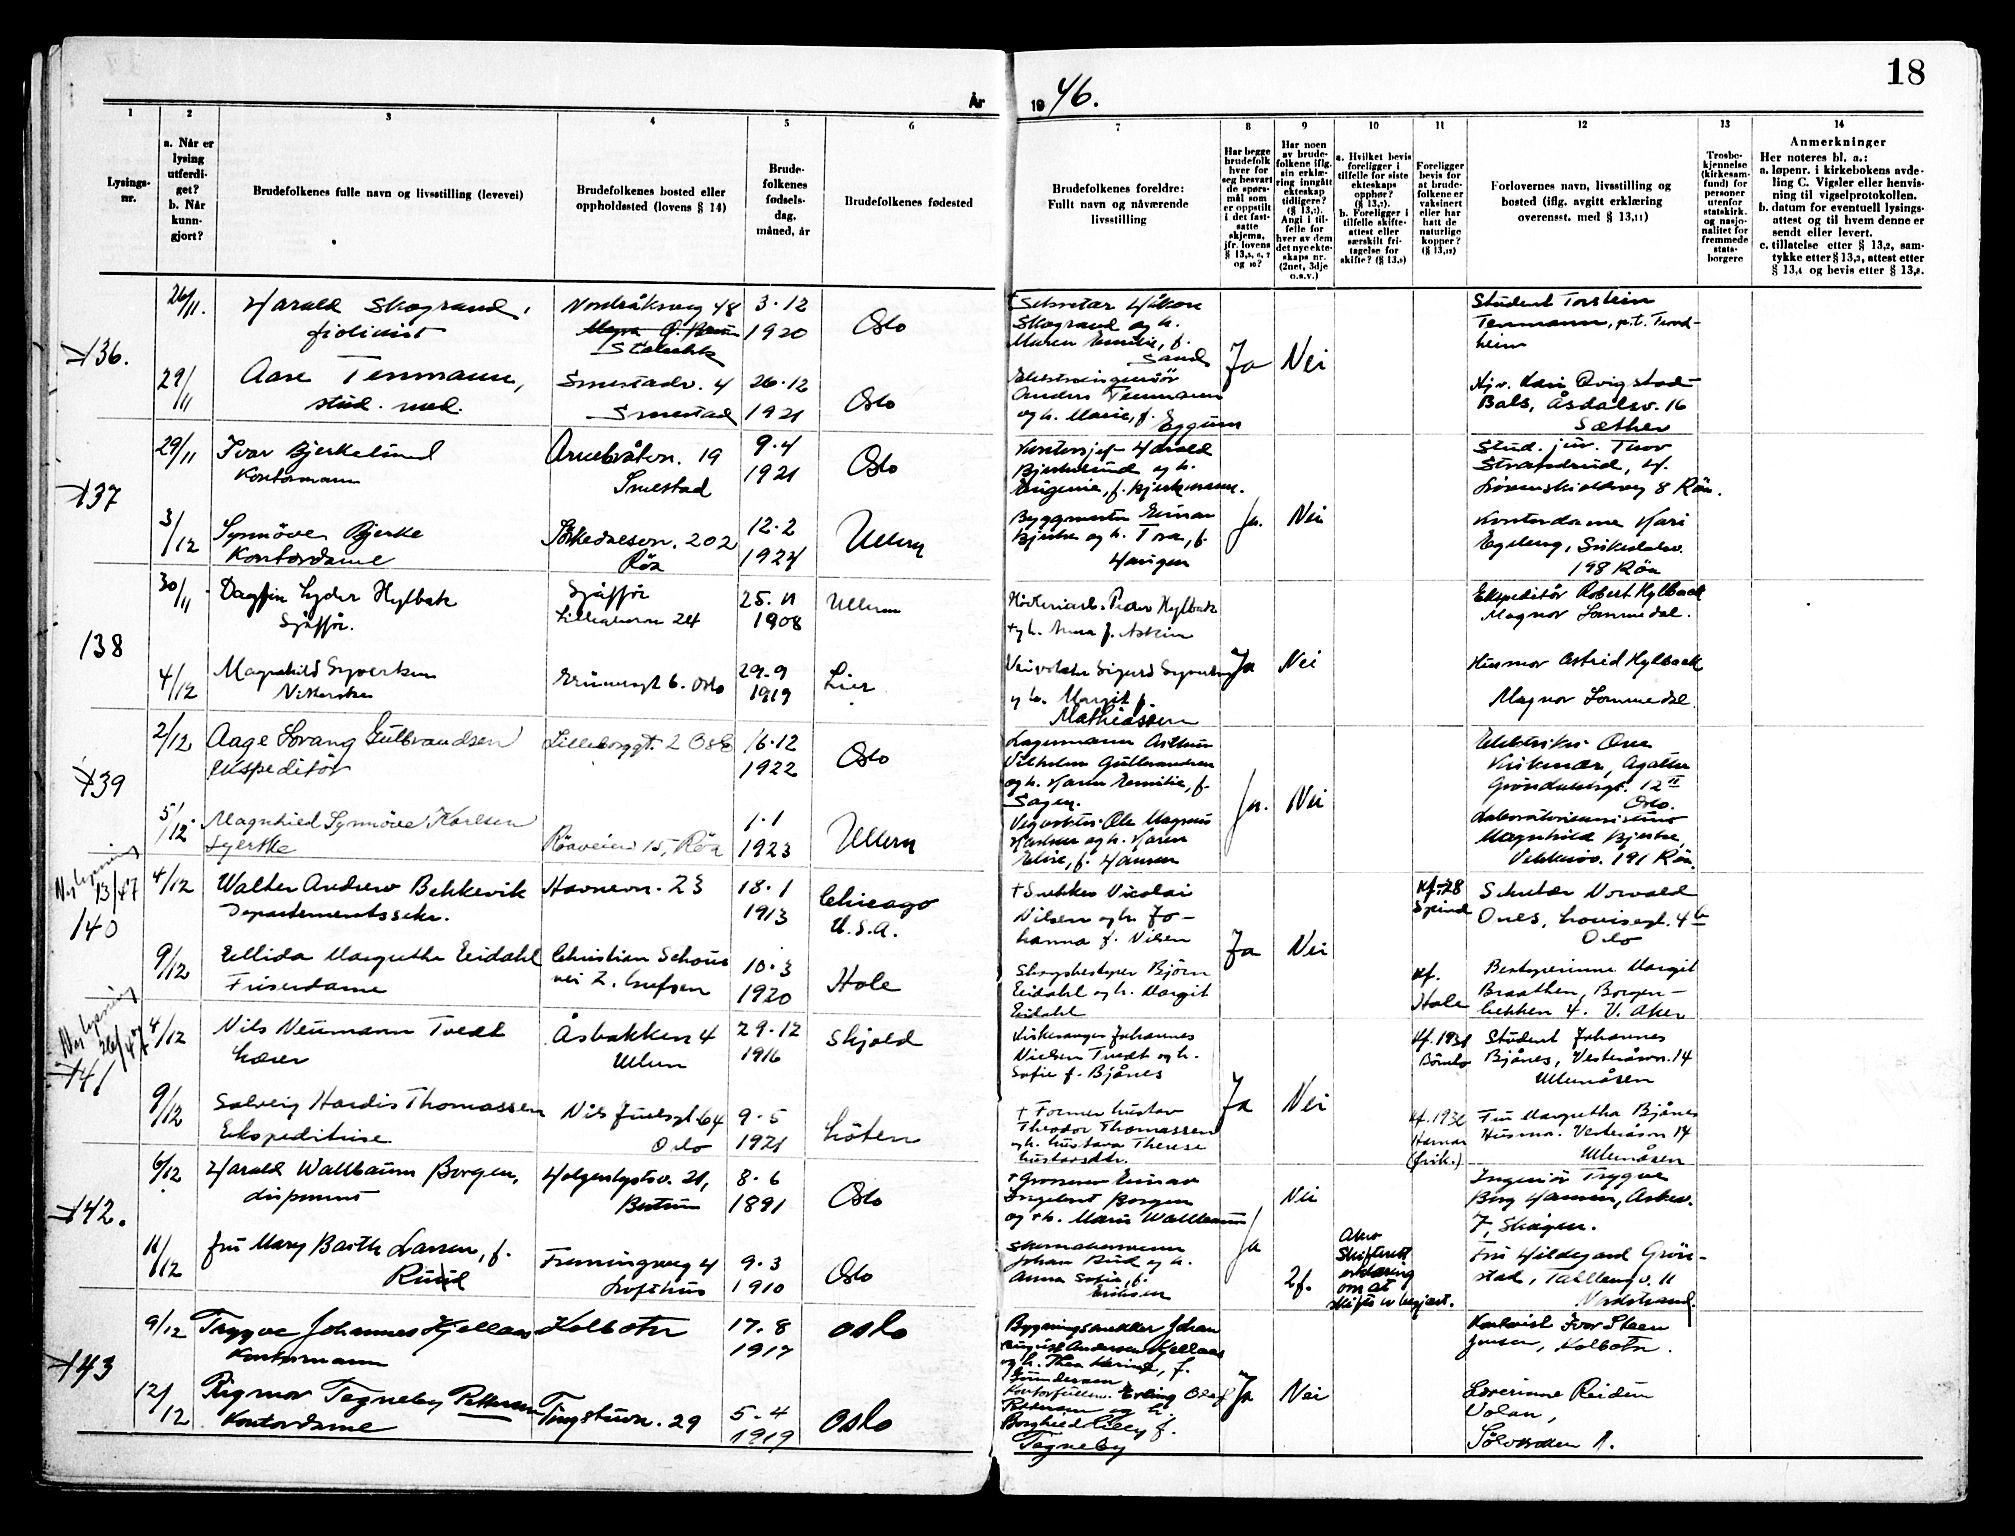 År
1946.
18
1
2
3
4
5
6
7
8
9
10
11
12
13
14
Lysings-
nr.
a. Når er
lysing
utferdi-
get?
b. Når
kunn-
gjort?
Brudefolkenes fulle navn og livsstilling (levevei)
Brudefolkenes bosted eller
oppholdssted (lovens § 14)
Brude-
folkenes
fødsels-
dag,
måned, år
Brudefolkenes fødested
Brudefolkenes foreldre:
Fullt navn og nåværende
livsstilling
Har begge
brudefolk
hver for
seg besvart
de spørs-
mål som
er oppstilt
i det fast-
satte
skjema,
jfr. lovens
og 10?
Har noen
av brude-
folkene iflg.
sin erklæ-
ring inngått
ekteskap
tidligere?
Angi i til-
felle for
hver av dem
det nye ekte-
skaps nr.
(2net, 3dje
o.s.v.)
a. Hvilket bevis
foreligger i
tilfelle for siste
ekteskaps
opphør?
b. Foreligger i
tilfelle skifte-
attest eller
særskilt fri-
tagelse for
skifte?
Foreligger
bevis for
at brude-
folkene er
vaksinert
eller har
hatt de
naturlige
kopper?
Forlovernes navn, livsstilling og
bosted (iflg. avgitt erklæring
overensst. med § 13,11)
Trosbe-
kjennelse
(kirkesam-
fund) for
personer
utenfor
statskirk.
og nasjo-
nalitet for
fremmede
stats-
borgere
Anmerkninger
Her noteres bl. a.:
a. løpenr. i kirkebokens avde-
ling C. Vigsler eller henvis-
ning til vigselprotokollen.
b. datum for eventuell lysings-
attest og til hvem denne er
sendt eller levert.
c. tillatelse etter § 13,2, sam-
tykke etter § 13,3, attest etter
§ 13,4 og bevis etter § 13,8.
136.
26/11.
Harald Skogrand,
fiolinist
Nordråksveg 48
3.12
1920
Oslo
Sekretær Håkon
Skogrand og h.
Maren Emilie, f.
Sand
Ja
Nei
Student Torstein
Tenmann, p.t. Trond-
heim
29/11
Aase Tenmann,
stud. med.
Smestadv. 4
Smestad
26.12
1921
Oslo
Elektroingeniør
Anders Tenmann
og h. Marie, f.
Eggum
Kari Qvigstad
Bals, Åsdalsv. 16
Sæther
137
29/11
Ivar Bjerkelund
Kontormann
Arnebråtvn. 19
Smestad
9.4
1921
Oslo
Kontorsjef Harald
Bjerkelund og h.
Eugenie, f. Bjerkmann.
Ja.
Nei
Stud. jur. Thor
Strandrud, H.
Løvenskioldsveg 8 Röa.
3/12
Synnöve Bjerke
Kontordame
Sørkedalsvn. 202
Röa
12.2
1924
Ullern
Byggmester Einar
Bjerke og h. Tora, f.
Haugen
Kontordame Kari
Egeberg, Sørkedalsv.
198 Röa
138
30/11
Dagfin Lyder Hylbak
Sjåfför.
Sjåfför
Lilleakervn 24
25.11
1908
Ullern
Peder Hylbak
og h. Anna f.
Ja
Nei
Ekspeditör Robert Hylbak
Magnor Sommedal.
4/12
Magnhild Syvertsen
29.9
1919
Lier
Sigurd Syvertsen
og h. Margit f.
Mathiassen
Husmor Astrid Hylbak
Magnor Sommedal
139
2/12
Aage Lorang Gulbrandsen
Ekspeditör
Lilleborggt. 2 Oslo
16.12
1922
Oslo
Lagermann Arthur
Vilhelm Gulbrandsen
og h. Karen Emilie, f.
Sagen.
Ja.
Nei
Elektriker Ove
Kirkemær, Agathe
Gröndahlsgt. 12 II
Oslo.
5/12
Magnhild Synnöve Karlsen
Röaveien 15, Röa
1.1
1923
Ullern
Vegvokter Ole Magnus
Karlsen og h. Karen
Elise, f. Hansen
Magnhild Bjerke,
Vekkerov. 191 Röa.
Ny lysning
13/47
140
4/12
Walter Andrew Bekkevik
Departementssekr.
Havnevn. 23
18.1
1913
Chicago
U.S.A.
+ Snekker Nicolai
Nilsen og h. Jo-
hanna f. Nilsen
Ja
Nei
Kf. 28
Spind
Sekretær Norvald
Ones, Louisegt. 4b
Oslo
9/12
Ellida Margrethe Eidahl
Frisørdame
Christian Schous
vei 2. Grefsen
10.3
1920
Hole
Skogbestyrer Björn
Eidahl og h. Margit
Eidahl
Kf.
Hole
Bestyrerinne Margit
Braathen, Borgen-
bekken 4. V. Aker
Ny lysning
26/47
141
4/12
Nils Neumann Tvedt
Lærer
Åsbakken 4
Ullern
29.12
1916
Skjold
Kirkesanger Johannes
Nielsen Tvedt og h.
Sofie f. Bjånes
Ja
Nei
Kf. 1931
Bömlo
Student Johannes
Bjånes, Vesteråsvn. 14
Ullernåsen
9/12
Solveig Hardis Thomassen
Ekspeditrise
Nils Juelsgt 64
Oslo
9.5
1921
Löten
+ Former Gustav
Theodor Thomassen
og h. Gustava Therese
Gustavsdtr.
Kf. 1936
Hamar
(frik.)
Fru Margretha Bjånes
Husmor. Vesteråsvn 14
Ullernåsen
142.
6/12
Harald Wallbaum Borgen,
disponent
Holgerslystv. 21,
Bestum
8.6
1891
Oslo
+ Grosserer Einar
Engebret Borgen
og + h. Marie Wallbaum
Ja
Nei
Ingeniör Trygve
Berg Hansen, Askev.
7, Skøyen.
11/12
Fru Mary Barth Larsen, f.
Ruud
Fremingsveg 4
Lofthus
9.3
1910
Oslo
Skomakermester
Johan Ruud og h.
Anna Sofie, f.
Eriksen
2f.
Aker
Skifterett
erklæring
om at
skifte er begjært.
Fru Hildegard Grön-
stad, Tallbergv. 11
Nordstrand.
143
9/12
Trygve Johannes Kjellaas
Kontormann
Kolbotn
17.8
1917
Oslo
Bygningssnekker Johan
August Andersen Kjellaas
og h. Thea Karine, f.
Gundersen
Ja
Nei
Kontorist Ivar Steen
Jensen, Kolbotn.
12/12
Rigmor Tegneby Pettersen
Kontordame
Tingstuvn. 29
5.4
1919
Oslo
Kontorfullm. Erling Olaf
Pettersen og h.
Borghild Lilly f.
Tegneby
Lærerinne Reidun
Volan,